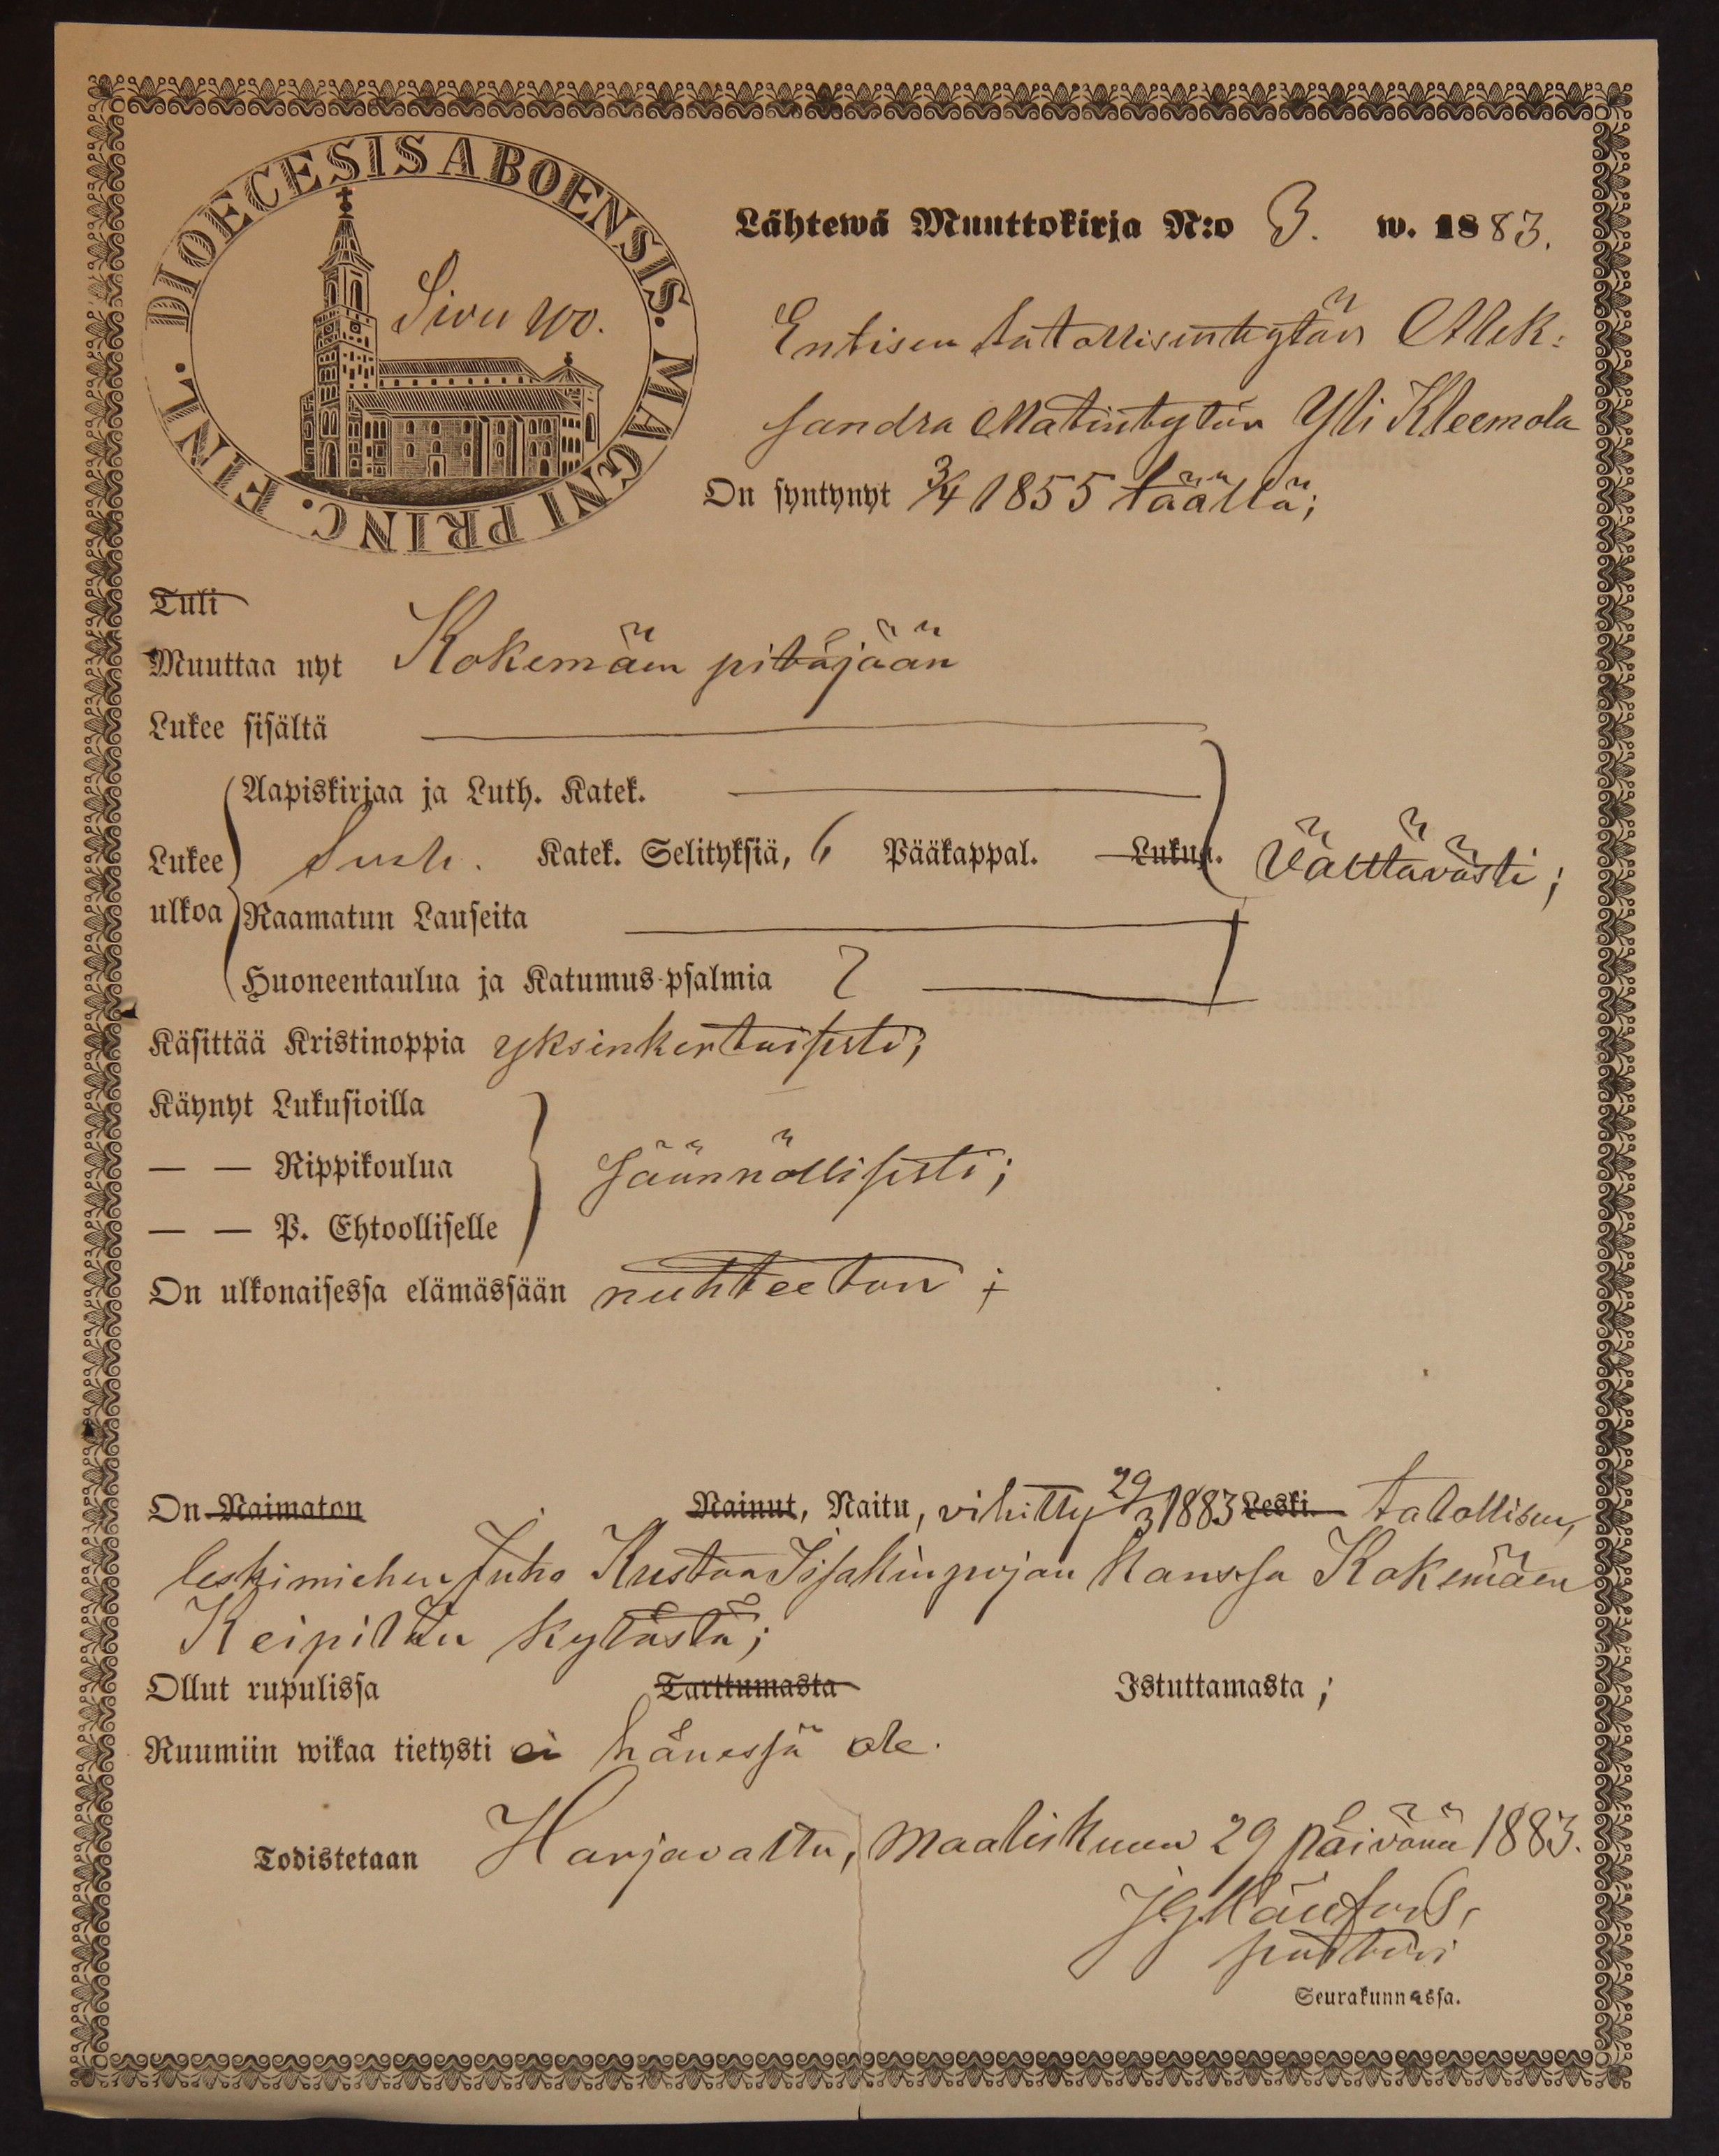 DIOECESIS ABOENSIS. MAGNI PRINC. FINL.
Sivu 100.
Lähtewä Muuttokirja N:o 3. w. 1883.
Entisen talollisentytär Alek:
sandra Matintytär Yli Kleemola
On syntynyt 3/4 1855 täällä;
Tuli
Muuttaa nyt Kokemäen pitäjään
Lukee sisältä
Aapiskirjaa ja Luth. Katek.
Lukee Katek. Selityksiä, 6 Pääkappal. Lukua. Välttävästi;
ulkoa Raamatun Lauseita
Huoneentaulua ja Katumus-psalmia
Käsittää Kristinoppia yksinkertaisesti;
Käynyt Lukusioilla
— — Rippikoulua säännöllisesti;
— — P. Ehtoolliselle
On ulkonaisessa elämässään nuhteeton;
On Naimaton Nainut, Naitu, vihitty 29/3 1883 Leski talollisen,
leskimiehen Juho Kustaa Iisakinpojan kanssa Kokemäen
Keipilän kylästä;
Ollut rupulissa Tarttumasta Istuttamasta;
Ruumiin wikaa tietysti ei hänessä ole.
Todistetaan Harjavalta, Maaliskuun 29 päivänä 1883.
pastori
Seurakunnassa.